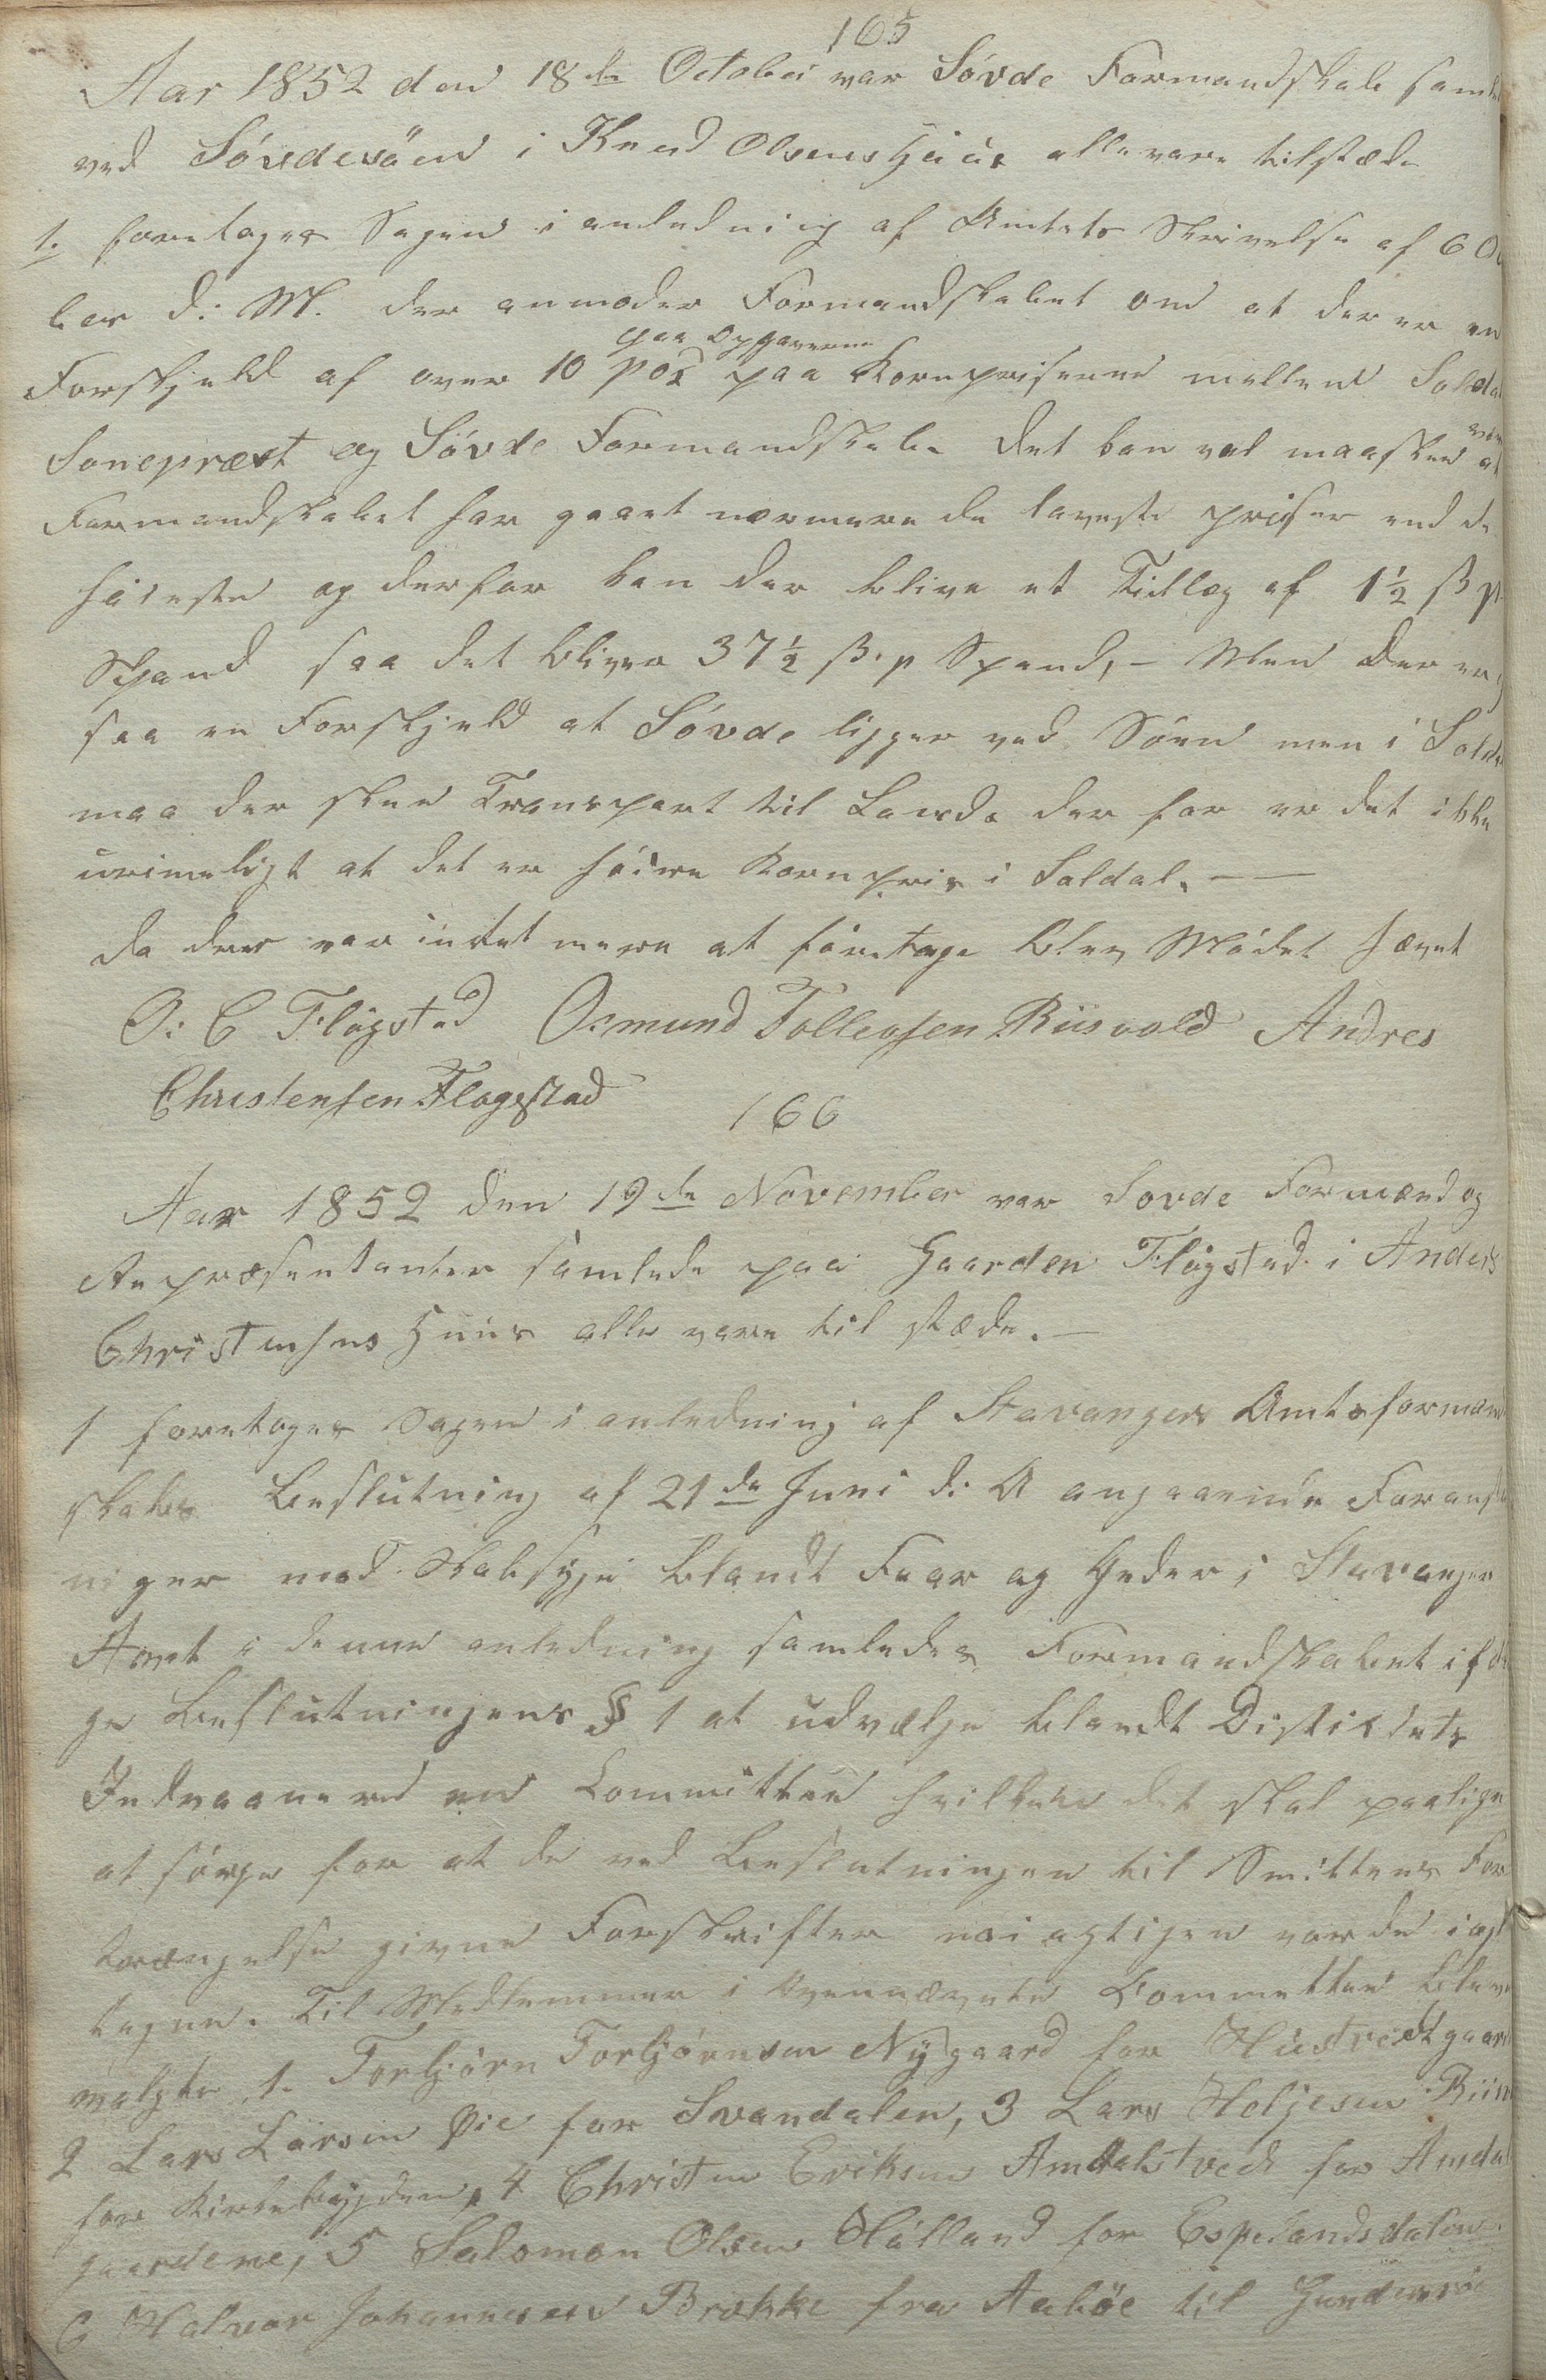 165
Aar 1852 den 18de October var Søvde Formandskab saml
ved Søvdesøen i Knud Olsens Huus alle vare tilstæde
1. foretoges Sagen i anledning af Amtets Skrivelse af 6 O
ber d: M. der anmoder Formandskabet om at der er en
paa Opgaverne
Forskjeld af over 10 pos paa Kornpriserne mellem Solda
Sonepræst og Søvde Formandskab. Det kan vel maaskee at
Formandskabet har gaaet nærmere de laveste priser end de
høieste og derfor kan der blive et Tillæg af 1½ ß p
Spand saa det bliver 37½ ß. p Spand, - Men der er
saa en Forskjeld at Søvde ligger ved Søen men i Solda
maa der skee Transport til Lands der for er det ikke
urimeligt at det er høiere Kornpris i Soldal. —
da der var intet mere at foretage blev Mødet hævet
O: C Flagstad Osmund Tollevsen Riisvold Andres
Christensen Flagestad
166
Aar 1852 den 19de November var Sovde Formænd og
Repræsentanter samlede paa Gaarden Flagstad i Anders
Christensens Huus alle vare til stæde. —
1 foretoges Sagen i anledning af Stavangers Amtsformand
skabs Beslutning af 21de Juni d: A angaaende Foranst
niger mod Skabsyge blandt Faar og Geder i Stavanger
Amt i denne anledning samledes Formandskabet iføl
ge Beslutningens § 1 at udvælge blandt Distictets
Indvaanere en Committee hvilken det skal paaligge
at sørge for at de ved Beslutningen til Smittens For
trængelse givne Forskrifter nøiagtigen vorde iagt
tagne. Til Medlemmer i Ovennævnte Committee bleve
valgte 1. Torbjørn Torbjørnsen Nygaard for Hustvedtgaard
2 Lars Larsen Øie for Svandalen, 3 Lars Holjesen Riis
for Kirkebygden, 4 Christen Eriksen Amdalstvedt for Amdal
gaardene, 5 Salomon Olsen Høiland for Espelandsdalen.
6 Halvor Johannesen Brække fra Aaböe til Gundersö